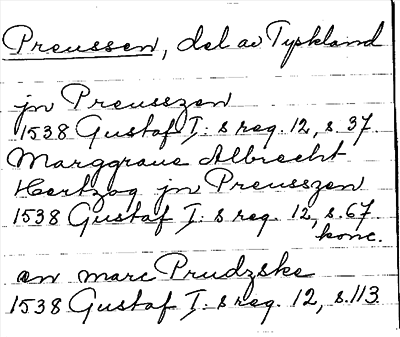 Preussen, del av Tyskland
jn Preusszen
1538 Gustaf I:s reg. 12, s. 37
Marggraue Albrecht
Hertzog jn Preusszen
1538 Gustaf I:s reg. 12, s. 67
konc.
en marc Prudzske
1538 Gustaf I:s reg. 12, s. 113